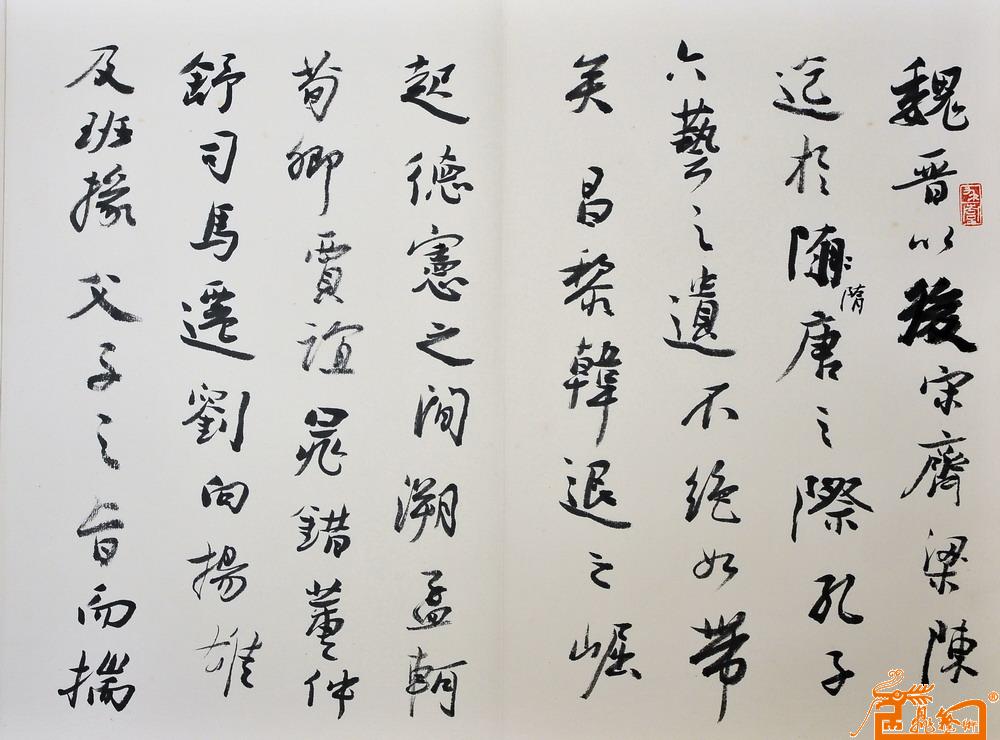 魏晋以後宋齊梁陳
迄於隋隋唐之際孔子
六藝之遺不絕如帶
矣昌黎韓退之崛
起德憲之間溯孟軻
荀卿賈誼晁錯董仲
舒司馬遷劉向揚雄
及班掾父子之旨而揣